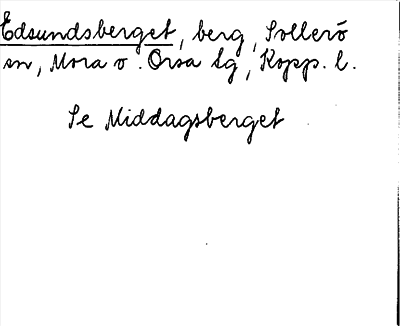 Edsundsberget, berg, Sollerö
sn, Mora o. Orsa tg, Kopp. l.
Se Middagsberget